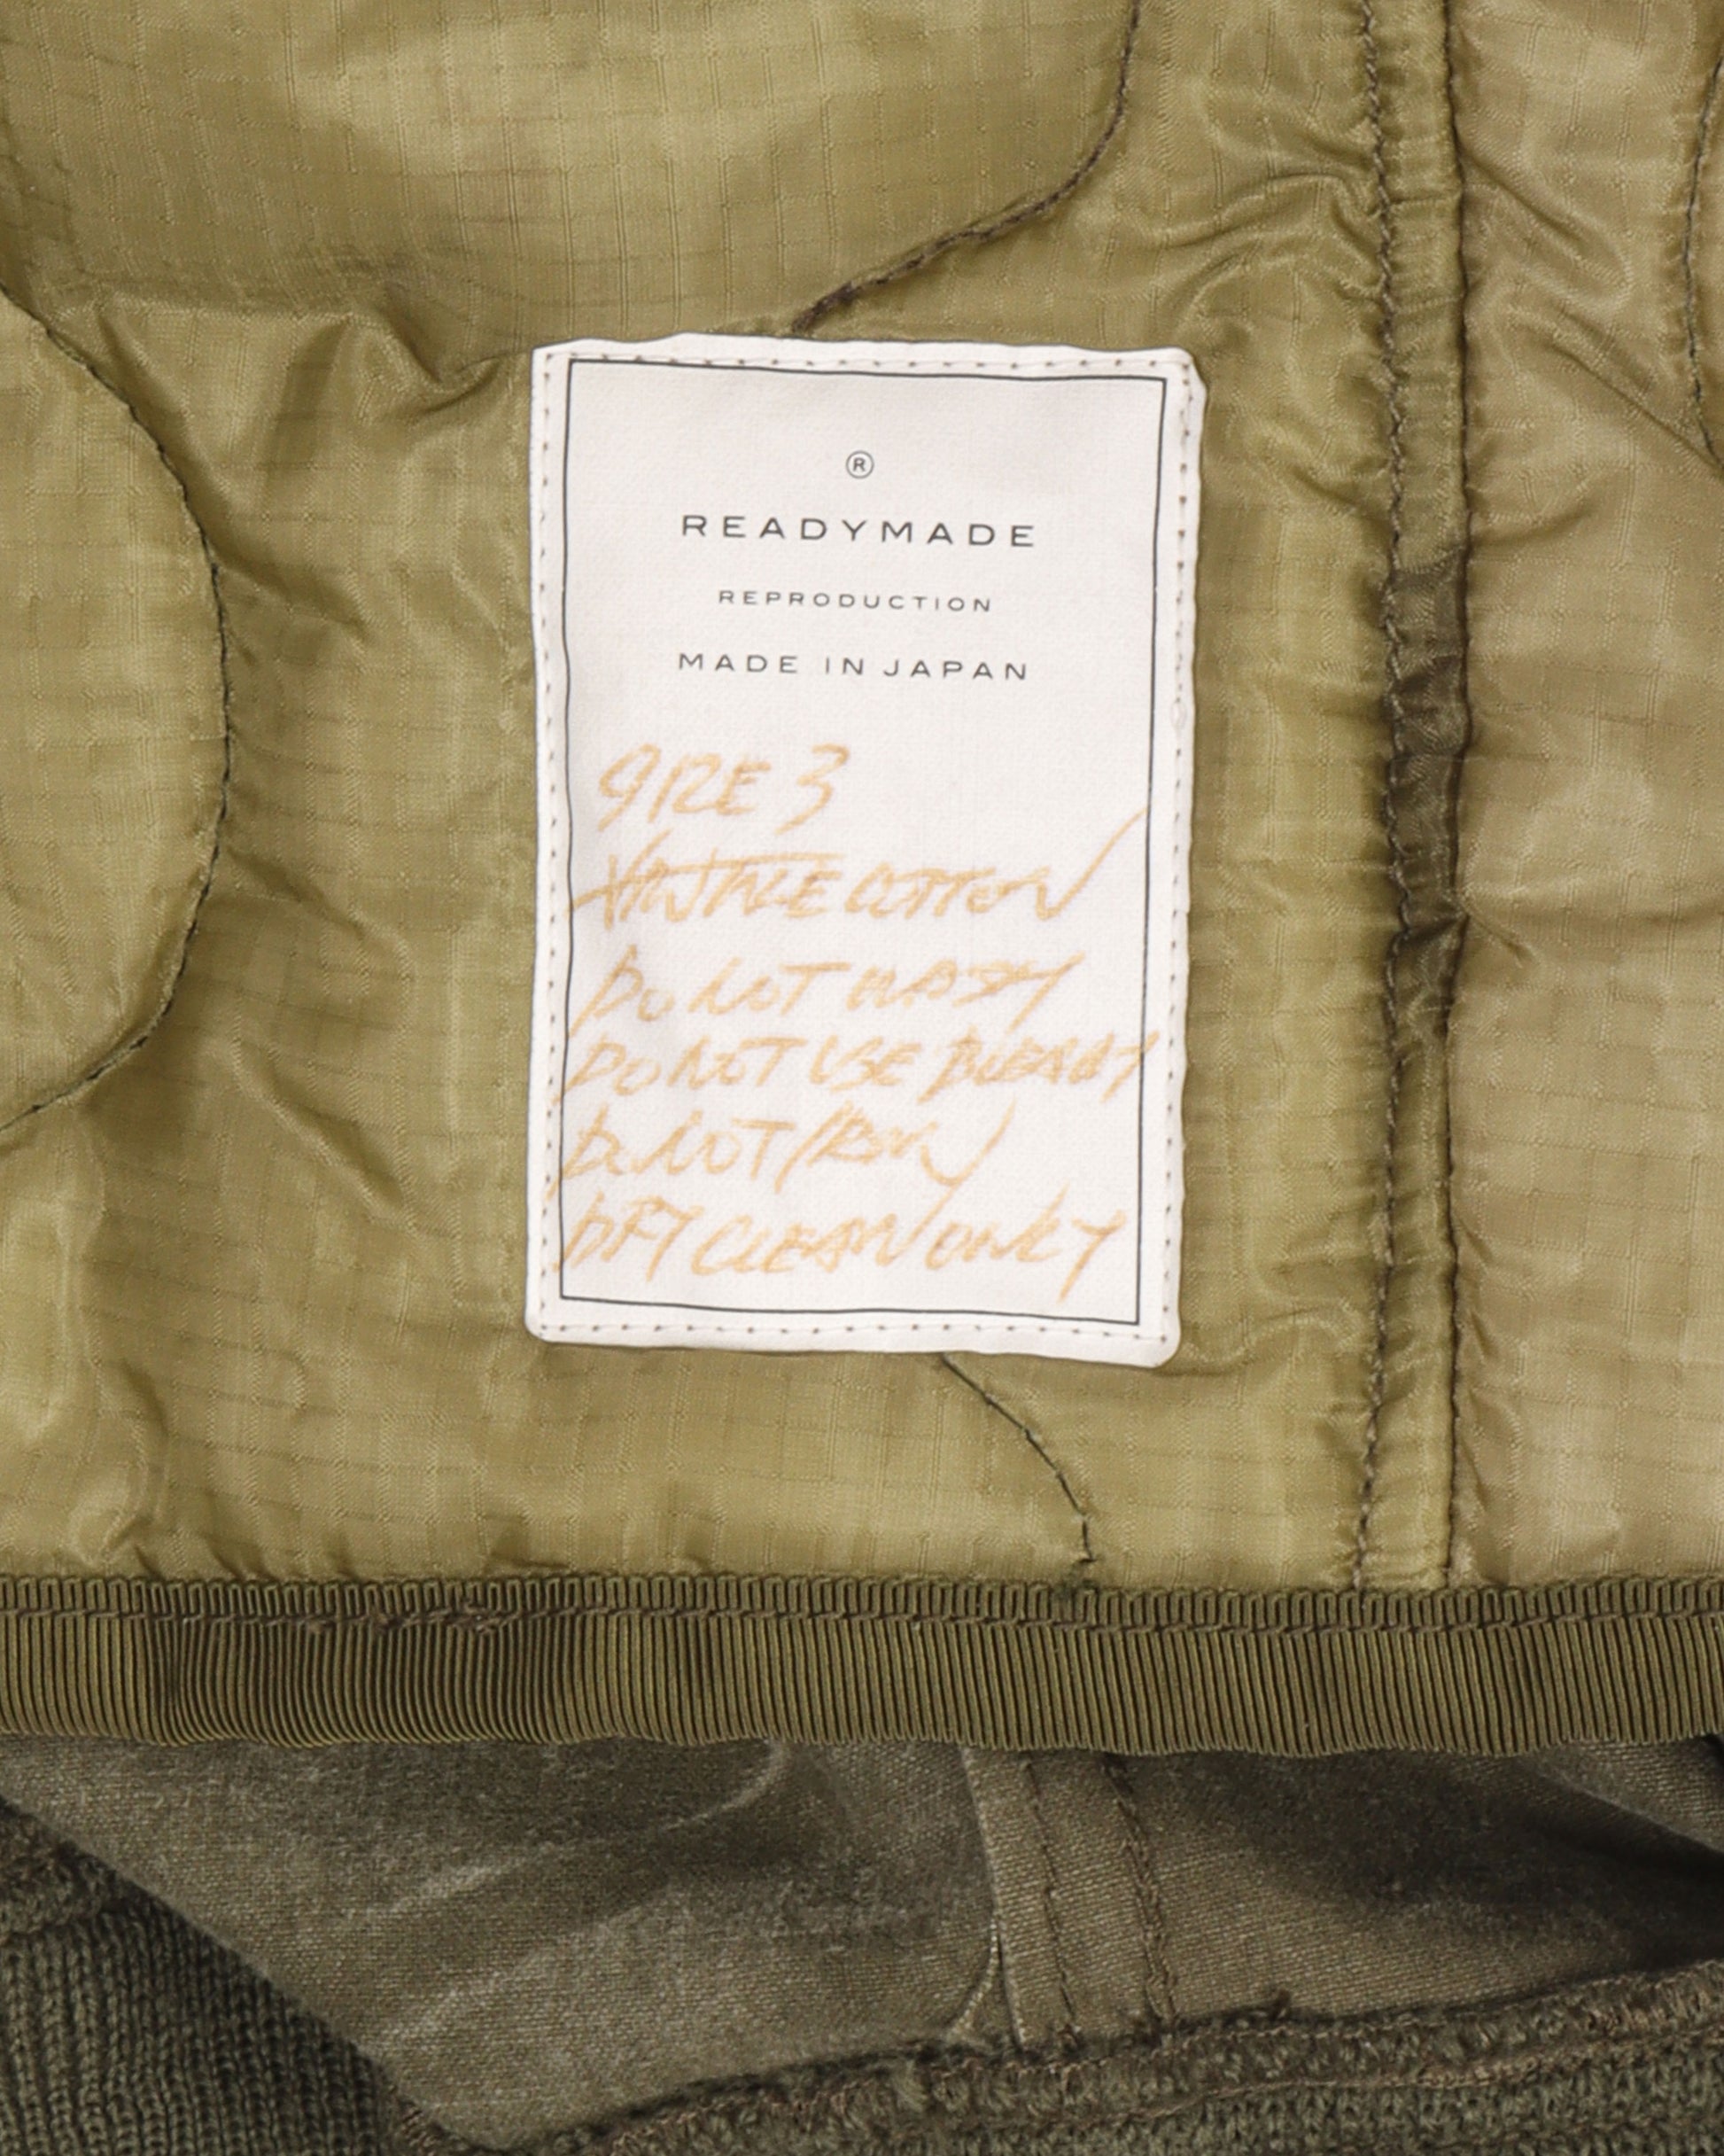 ®
READYMADE
REPRODUCTION
MADE IN JAPAN
SIZE 3
VINTAGE COTTON
DO NOT WASH
DO NOT USE BLEACH
DO NOT IRON
DRY CLEAN ONLY